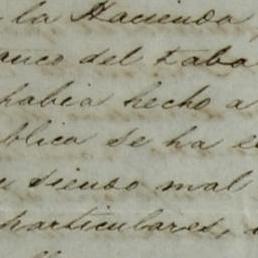 la Hacienda
del taba
habia hecho a
blica se ha
siendo mal
particulares,